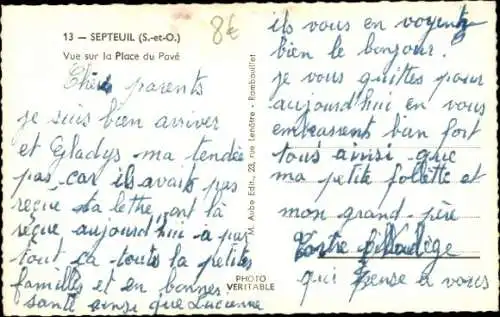 13 — SEPTEUIL (S.-et-O.)
Vue sur la Place du Pavé
8€
Chers parents
je suis bien arriver
et Gladys ma tendée
pas, car ils avait pas
reçue ta lettre, ont là
réçue aujourd'hui à par
tout ça toute la petites
familles et en bonnes
santé ainsi que Lucienne
M. Aubo Edit., 23, rue Lenôtre - Rambouillet
PHOTO
VERITABLE
ils vous en voyent
bien le bonjour.
je vous quittes pour
aujourd'hui en vous
embrassent bien fort
tous ainsi que
ma petite follette et
mon grand-père
Votre
qui pense a vous